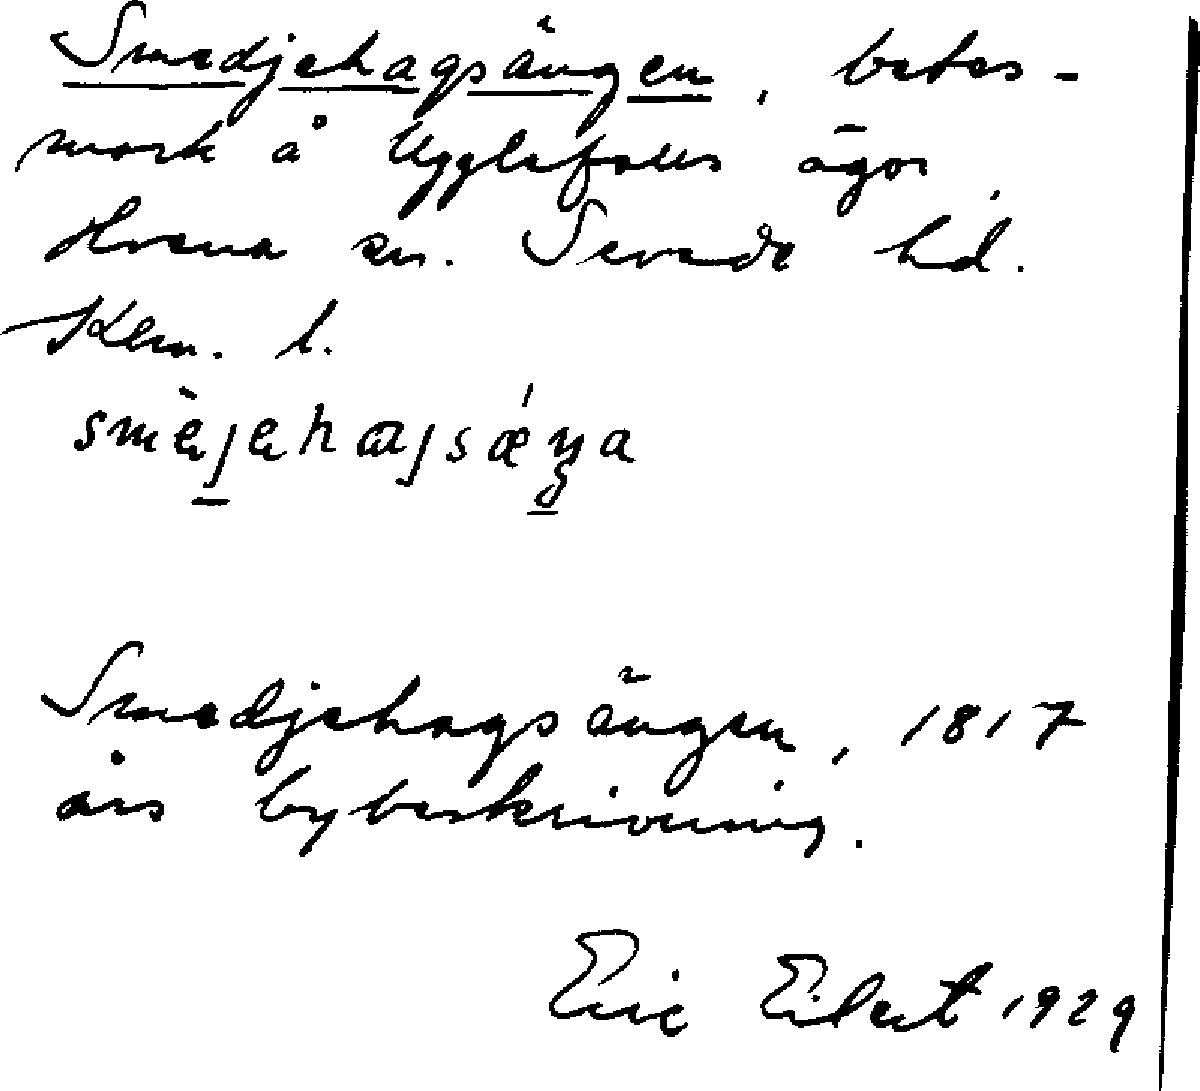 Smedjehagsängen, betes-
mark å Ugglefalls ägor,
Horena sn. Sevede hd.
Klm. l.
Smedjehagsängen, 1817
års bybeskrivning.
Eric Eilert 1929